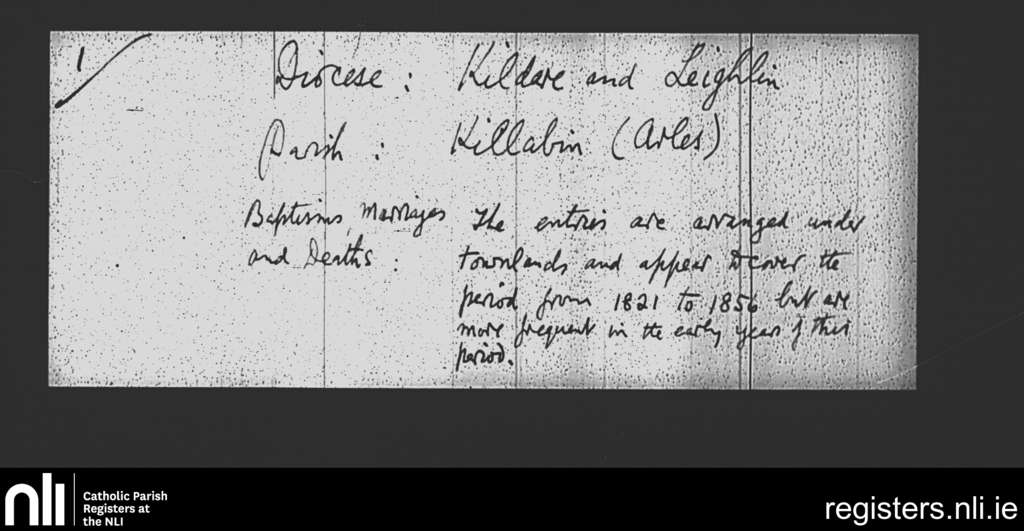 1/
Diocese : Kildare and Leighlin
Parish : Killabin (Arles)
Baptisms, Marriages The entries are arranged under
and Deaths : townlands and appear to cover the
period from 1821 to 1856 but are
more frequent in the early years of this
period.
nli Catholic Parish
Registers at
the NLI
registers.nli.ie